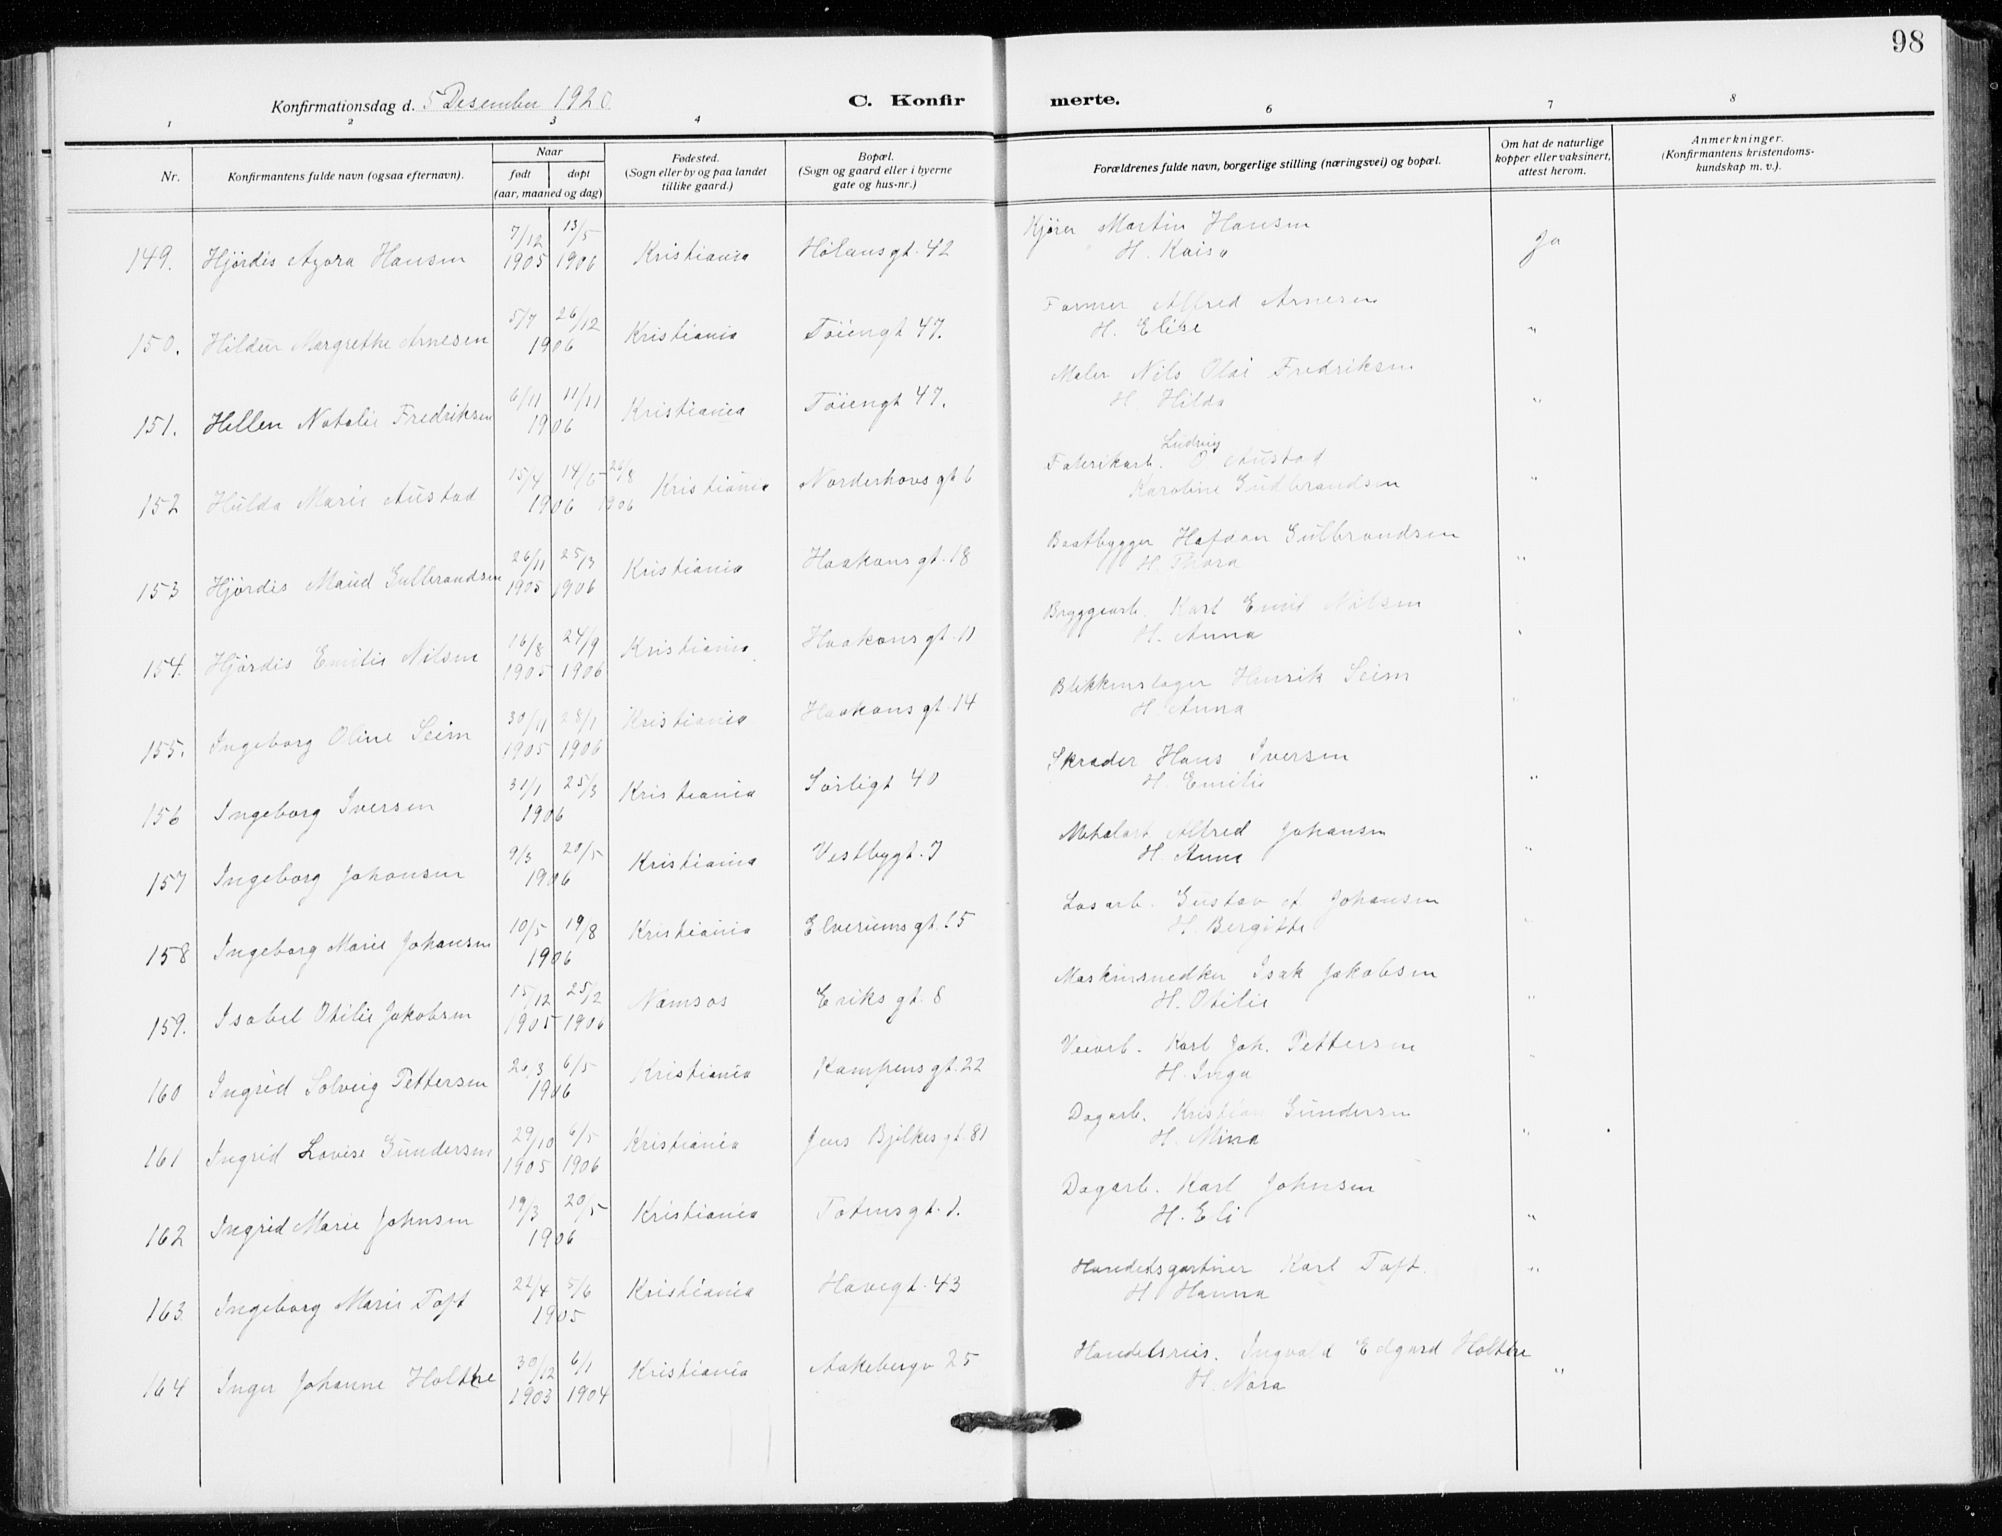 98
Konfirmationsdag d. 5 Desember 1920
C. Konfirmerte.
1 2 3 4 6 7 8
Nr.
Konfirmantens fulde navn (ogsaa efternavn).
Naar
født døpt
(aar, maaned og dag)
Fødested.
(Sogn eller by og paa landet
tillike gaard.)
Bopæl.
(Sogn og gaard eller i byerne
gate og hus-nr.)
Forældrenes fulde navn, borgerlige stilling (næringsvei) og bopæl.
Om hat de naturlige
kopper eller vaksinert,
attest herom.
Anmerkninger.
(Konfirmantens kristendoms-
kundskap m. v.).
7/12 13/5 Kjører Martin Hansen
149. Hjördis Azora Hansen 1905 1906 Kristiania Hölansgt. 42 H. Kaisa Ja
5/7 26/12 Former Alfred Arnesen
150. Hildur Margrethe Arnesen 1906 Kristiania Töiengt 47. H. Elise "
6/11 11/11 Maler Nils Olai Fredriksen
151. Hellen Natalie Fredriksen 1906 Kristiania Töiengt 47. H Hilda "
Ludvig
15/4 14/6 26/8 Fabrikarb. O. Austad
152 Hulda Marie Austad 1906 1906 Kristiania Norderhovsgt 6 Karoline Gudbrandsen "
26/11 25/3 Baatbygger Hafdan Gulbrandsen
153 Hjördis Maud Gulbrandsen 1905 1906 Kristiania Haakonsgt. 18 H. Thora "
16/8 24/9 Bryggearb. Karl Emil Nilsen
154. Hjördis Emilie Nilsen 1905 1906 Kristiania Haakonsgt. 11 H. Anna "
30/11 28/1 Blikkenslager Henrik Seim
155. Ingeborg Oline Seim 1905 1906 Kristiania Haakonsgt. 14 H. Anna "
31/1 25/3 Skræder Hans Iversen
156 Ingeborg Iversen 1906 Kristiania Sörligt 40 H. Emilie "
9/3 20/5 Metalarb Alfred Johansen
157 Ingeborg Johansen 1906 Kristiania Vestbygt. 7 H. Anna "
10/5 19/8 Løsarb. Gustav A Johansen
158 Ingeborg Marie Johansen 1906 Kristiania Elverumsgt. 15 H. Bergitte "
15/12 25/2 Maskinsnedker Isak Jakobsen
159. Isabel Otilie Jakobsen 1905 1906 Namsos Eriksgt. 8 H. Otilie "
26/3 6/5 Veiarb. Karl Joh. Pettersen
160 Ingrid Solveig Pettersen 1906 Kristiania Kampensgt. 22 H. Inga "
29/10 6/5 Dagarb. Kristian Gundersen
161 Ingrid Lovise Gundersen 1905 1906 Kristiania Jens Bjelkesgt. 81 H. Mina "
19/3 20/5 Dagarb. Karl Johnsen
162 Ingrid Marie Johnsen 1906 Kristiania Totensgt. 1. H. Eli "
22/4 5/6 Handelsgartner Karl Toft.
163 Ingeborg Marie Toft 1905 Kristiania Havegt. 43 H Hanna "
30/12 6/1 Handelsreis. Ingvald Edgard Holthe
164 Inger Johanne Holthe 1903 1904 Kristiania Aakebergv 25 H. Nora "